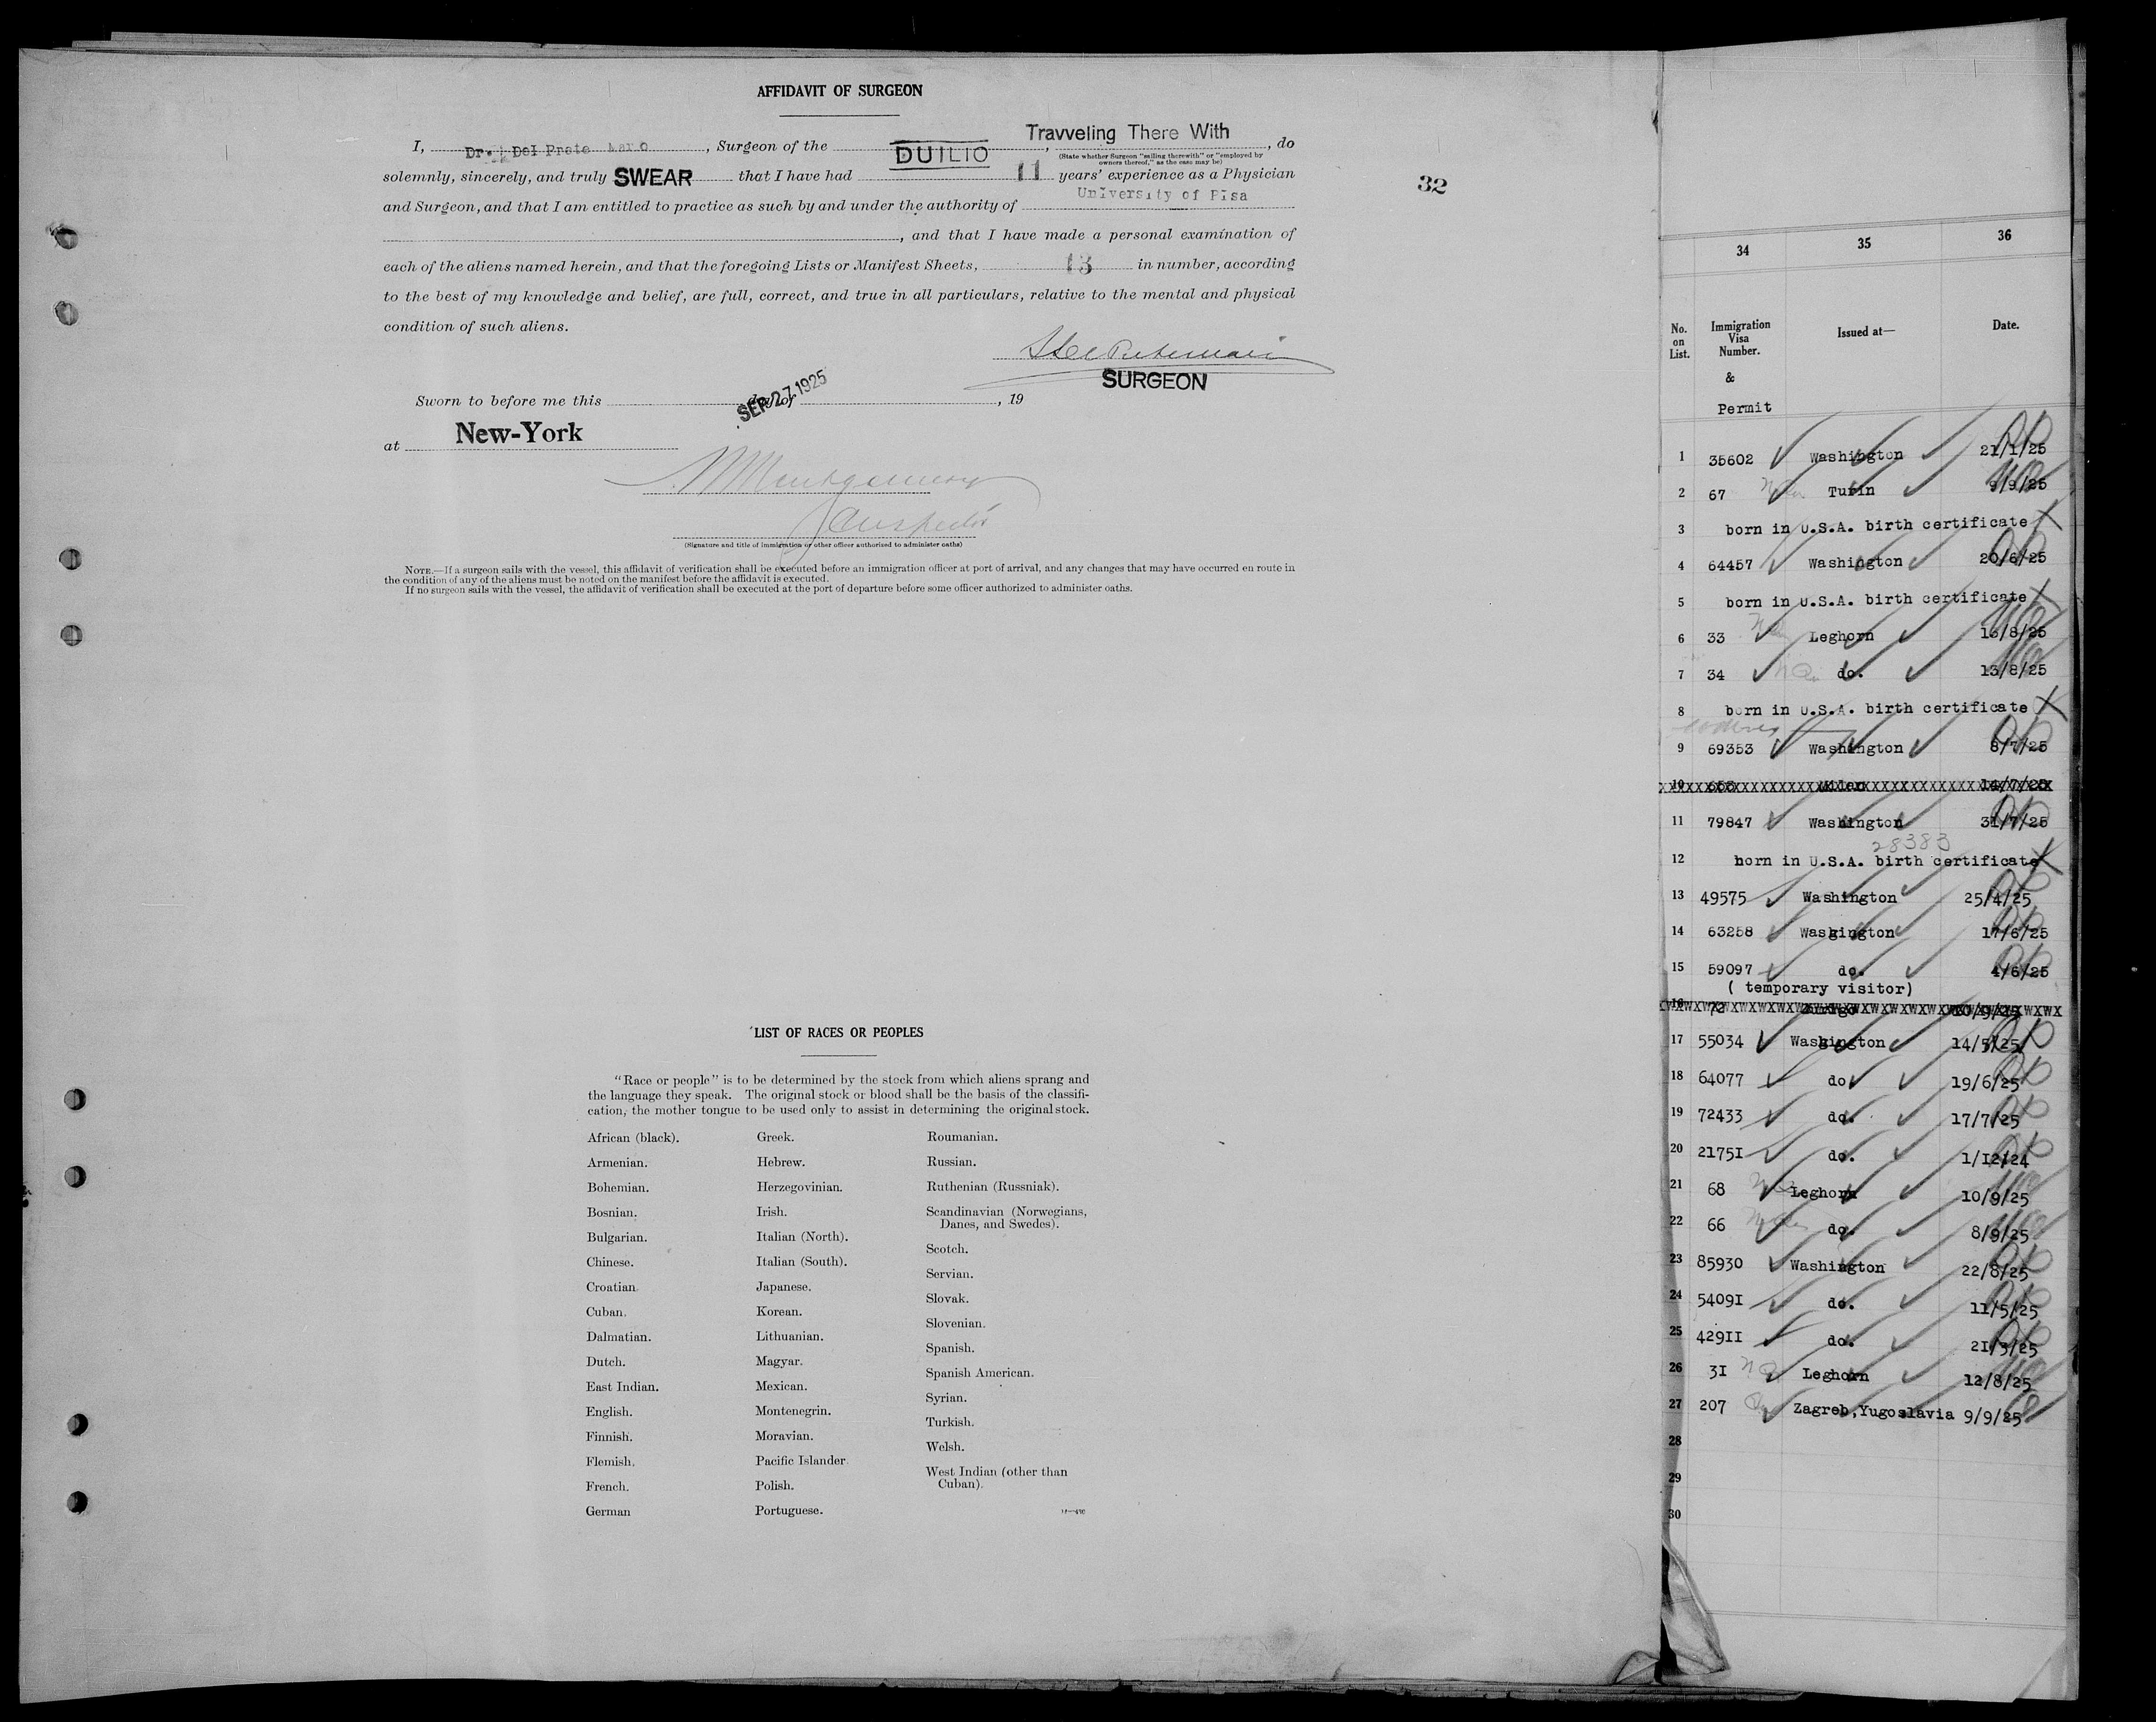 AFFIDAVIT OF SURGEON
Travveling There With
I, Dr. Del Prete Mario, Surgeon of the DUILIO, do
(State whether Surgeon "sailing therewith" or "employed by
owners thereof," as the case may be)
solemnly, sincerely, and truly SWEAR that I have had 11 years' experience as a Physician
University of Pisa
and Surgeon, and that I am entitled to practice as such by and under the authority of
, and that I have made a personal examination of
each of the aliens named herein, and that the foregoing Lists or Manifest Sheets, 13 in number, according
to the best of my knowledge and belief, are full, correct, and true in all particulars, relative to the mental and physical
condition of such aliens.
SURGEON
Sworn to before me this day of , 19
SEP 27 1925
at New-York
Montgomery
Inspector
(Signature and title of immigration or other officer authorized to administer oaths)
NOTE.—If a surgeon sails with the vessel, this affidavit of verification shall be executed before an immigration officer at port of arrival, and any changes that may have occurred en route in
the condition of any of the aliens must be noted on the manifest before the affidavit is executed.
If no surgeon sails with the vessel, the affidavit of verification shall be executed at the port of departure before some officer authorized to administer oaths.
LIST OF RACES OR PEOPLES
"Race or people" is to be determined by the stock from which aliens sprang and
the language they speak. The original stock or blood shall be the basis of the classifi-
cation, the mother tongue to be used only to assist in determining the original stock.
African (black).
Armenian.
Bohemian.
Bosnian.
Bulgarian.
Chinese.
Croatian.
Cuban.
Dalmatian.
Dutch.
East Indian.
English.
Finnish.
Flemish.
French.
German
Greek.
Hebrew.
Herzegovinian.
Irish.
Italian (North).
Italian (South).
Japanese.
Korean.
Lithuanian.
Magyar.
Mexican.
Montenegrin.
Moravian.
Pacific Islander.
Polish.
Portuguese.
Roumanian.
Russian.
Ruthenian (Russniak).
Scandinavian (Norwegians,
Danes, and Swedes).
Scotch.
Servian.
Slovak.
Slovenian.
Spanish.
Spanish American.
Syrian.
Turkish.
Welsh.
West Indian (other than
Cuban).
32
34 35 36
No. on List. Immigration Visa Number. & Permit Issued at— Date.
1 35602 Washington 21/1/25
2 67 Turin 9/9/25
3 born in U.S.A. birth certificate
4 64457 Washington 20/6/25
5 born in U.S.A. birth certificate
6 33 Leghorn 13/8/25
7 34 do. 13/8/25
8 born in U.S.A. birth certificate
9 69353 Washington 8/7/25
10 Milan 14/7/25
11 79847 Washington 31/7/25
28383
12 born in U.S.A. birth certificate
13 49575 Washington 25/4/25
14 63258 Wasgington 17/6/25
15 59097 do. 4/6/25
( temporary visitor)
16 72
17 55034 Wasgington 14/5/25
18 64077 do 19/6/25
19 72433 do. 17/7/25
20 2175I do. 1/I2/24
21 68 Leghorn 10/9/25
22 66 do. 8/9/25
23 85930 Washington 22/8/25
24 5409I do. 11/5/25
25 429II do. 2I/3/25
26 3I Leghorn 12/8/25
27 207 Zagreb,Yugoslavia 9/9/25
28
29
30